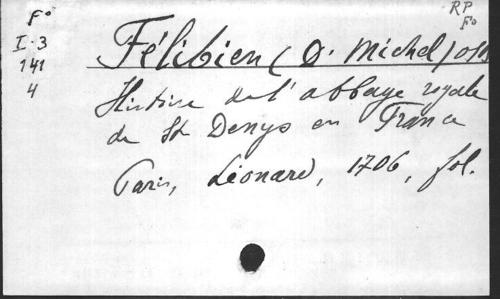 F°
I.3
141
4
RP
F°
Félibien (D. Michel)
Histoire de l'abbaye royale
de St Denys en France
Paris, Léonard, 1706, fol.